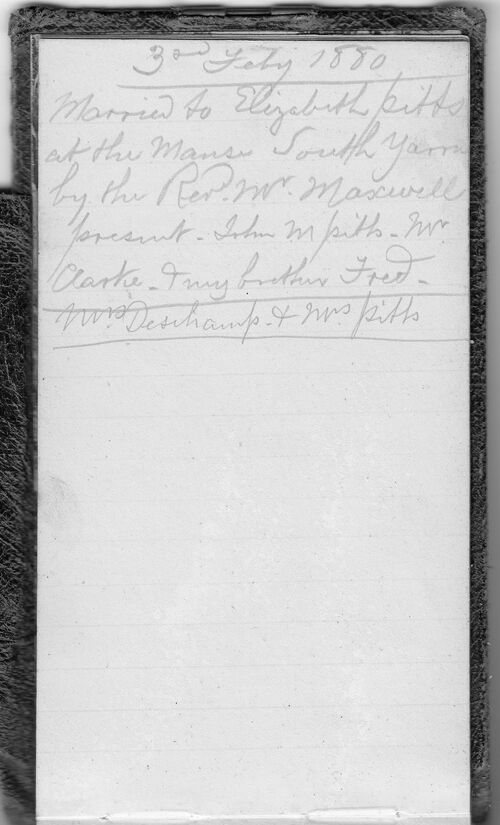 3rd Feby 1880
Married to Elizabeth pitts
at the Manse South Yarra
by the Revd. Mr. Maxwell
present - John M pitts - Mr
Clarke - & my brother Fred -
Mrs Deschamp - & Mrs pitts